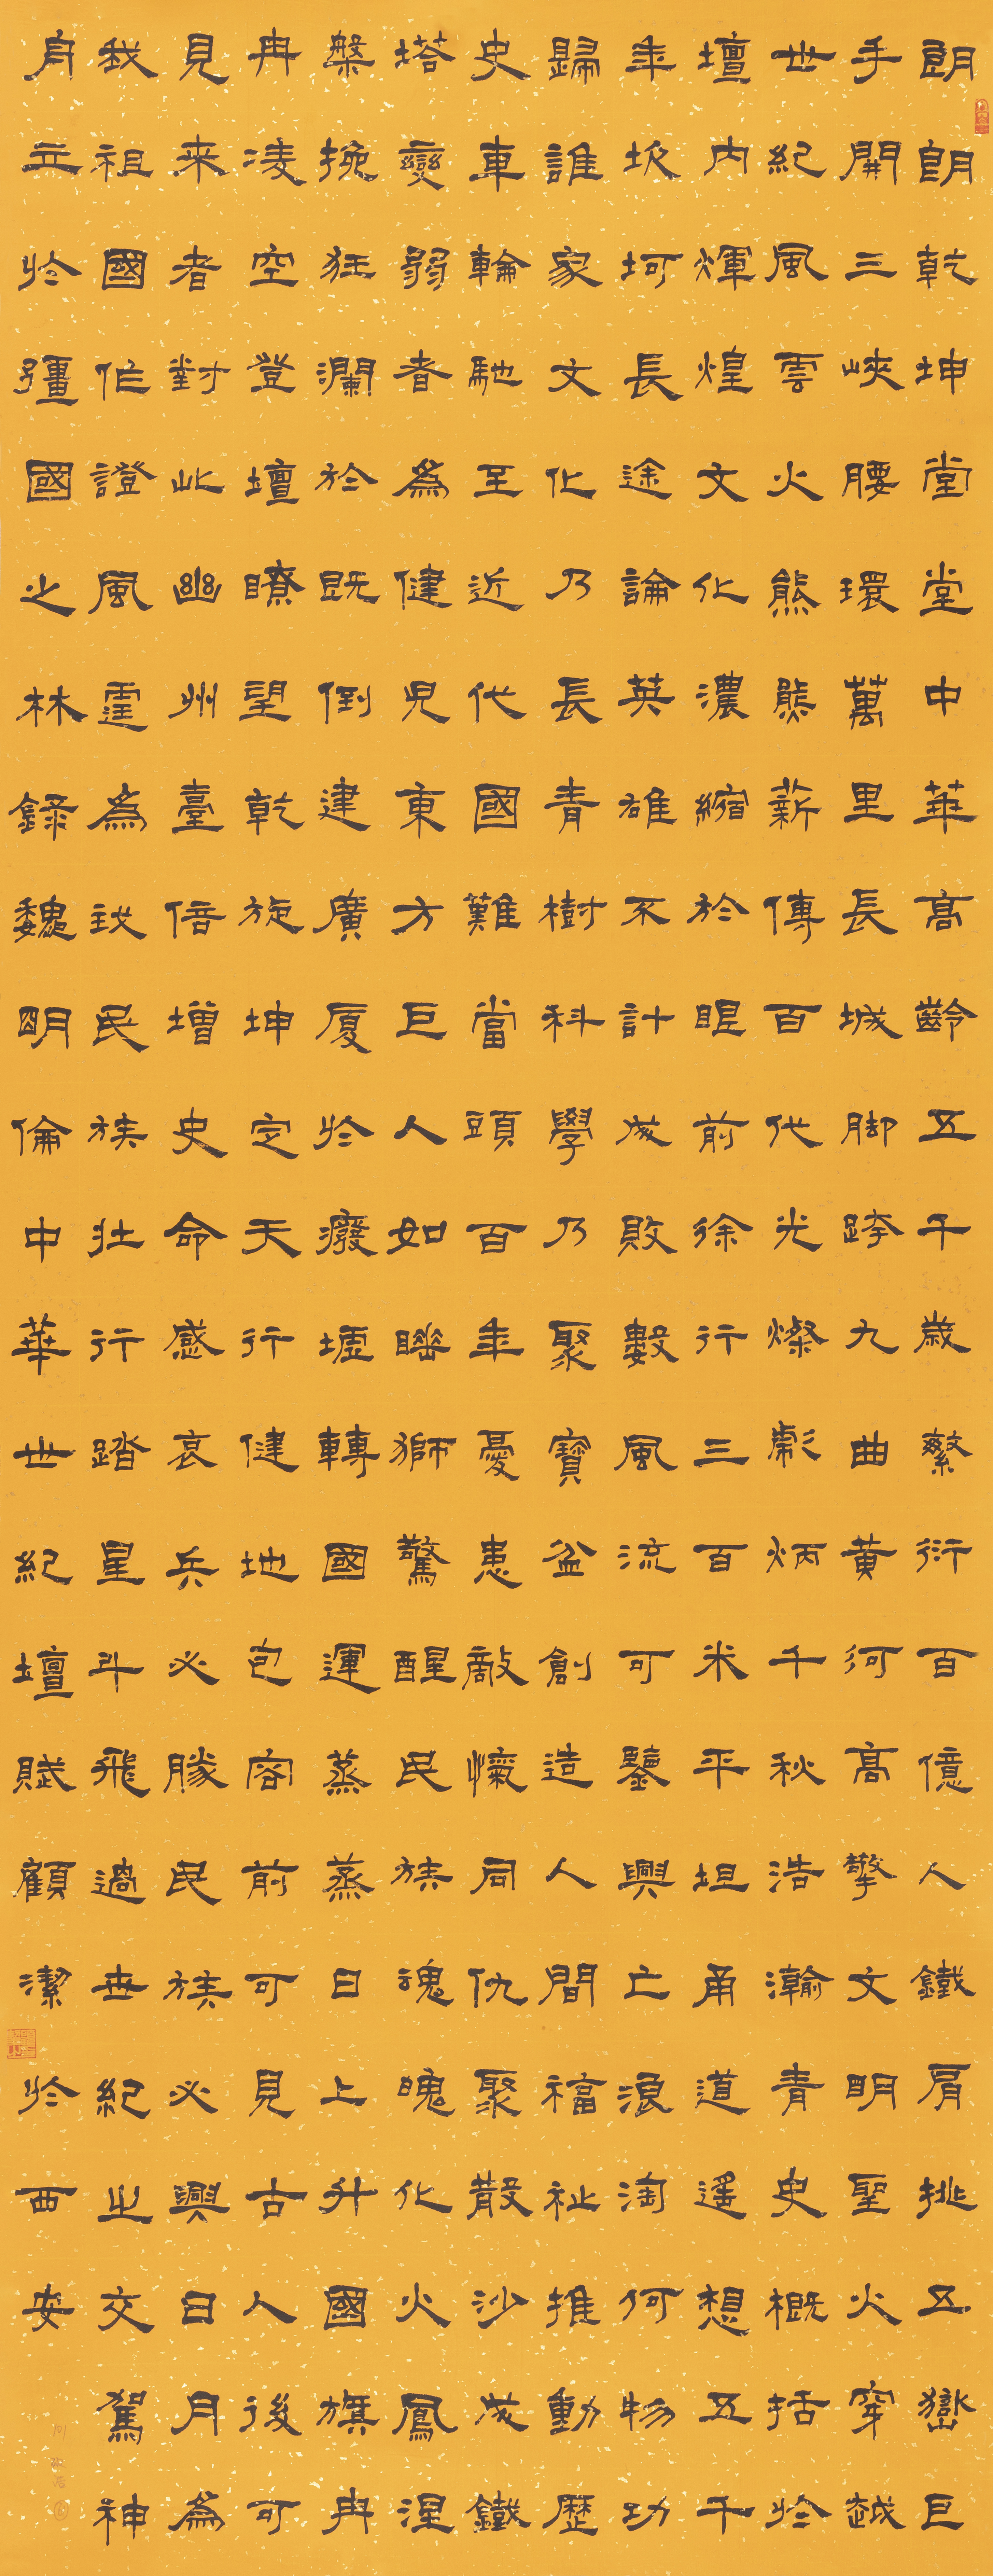 朗朗乾坤堂堂中華高齡五千歲繁衍百億人鐵肩挑五嶽巨
手開三峽腰環萬里長城脚跨九曲黃河高擎文明聖火穿越
世紀風雲火熊熊薪傳百代光燦彪炳千秋浩瀚青史概括於
壇内輝煌文化濃縮於眼前徐行三百米平坦甬道遙想五千
年坎坷長途論英雄不計成敗數風流可鑒興亡浪淘何物功
歸誰家文化乃長青樹科學乃聚寶盆創造人間福祉推動歷
史車輪馳至近代國難當頭百年憂患敵愾同仇聚散沙成鐵
塔變弱者為健兒東方巨人如睡獅驚醒民族魂魄化火鳳涅
槃挽狂瀾於既倒建廣厦於癈墟轉國運蒸蒸日上升國旗冉
冉凌空登壇瞭望乾旋坤定天行健地包容前可見古人後可
見來者對此幽州臺倍增史命感哀兵必勝民族必興日月為
我祖國作證風霆為我民族壯行踏星斗飛過世紀之交駕神
舟立於彊國之林錄魏明倫中華世紀壇賦顧潔於西安